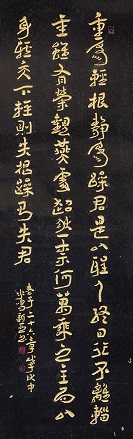 重為輕根靜為躁君是以聖人終日行不離輜
重雖有榮觀燕處超然奈何萬乘之主而以
身輕天下輕則失根躁則失君
老子二十六章